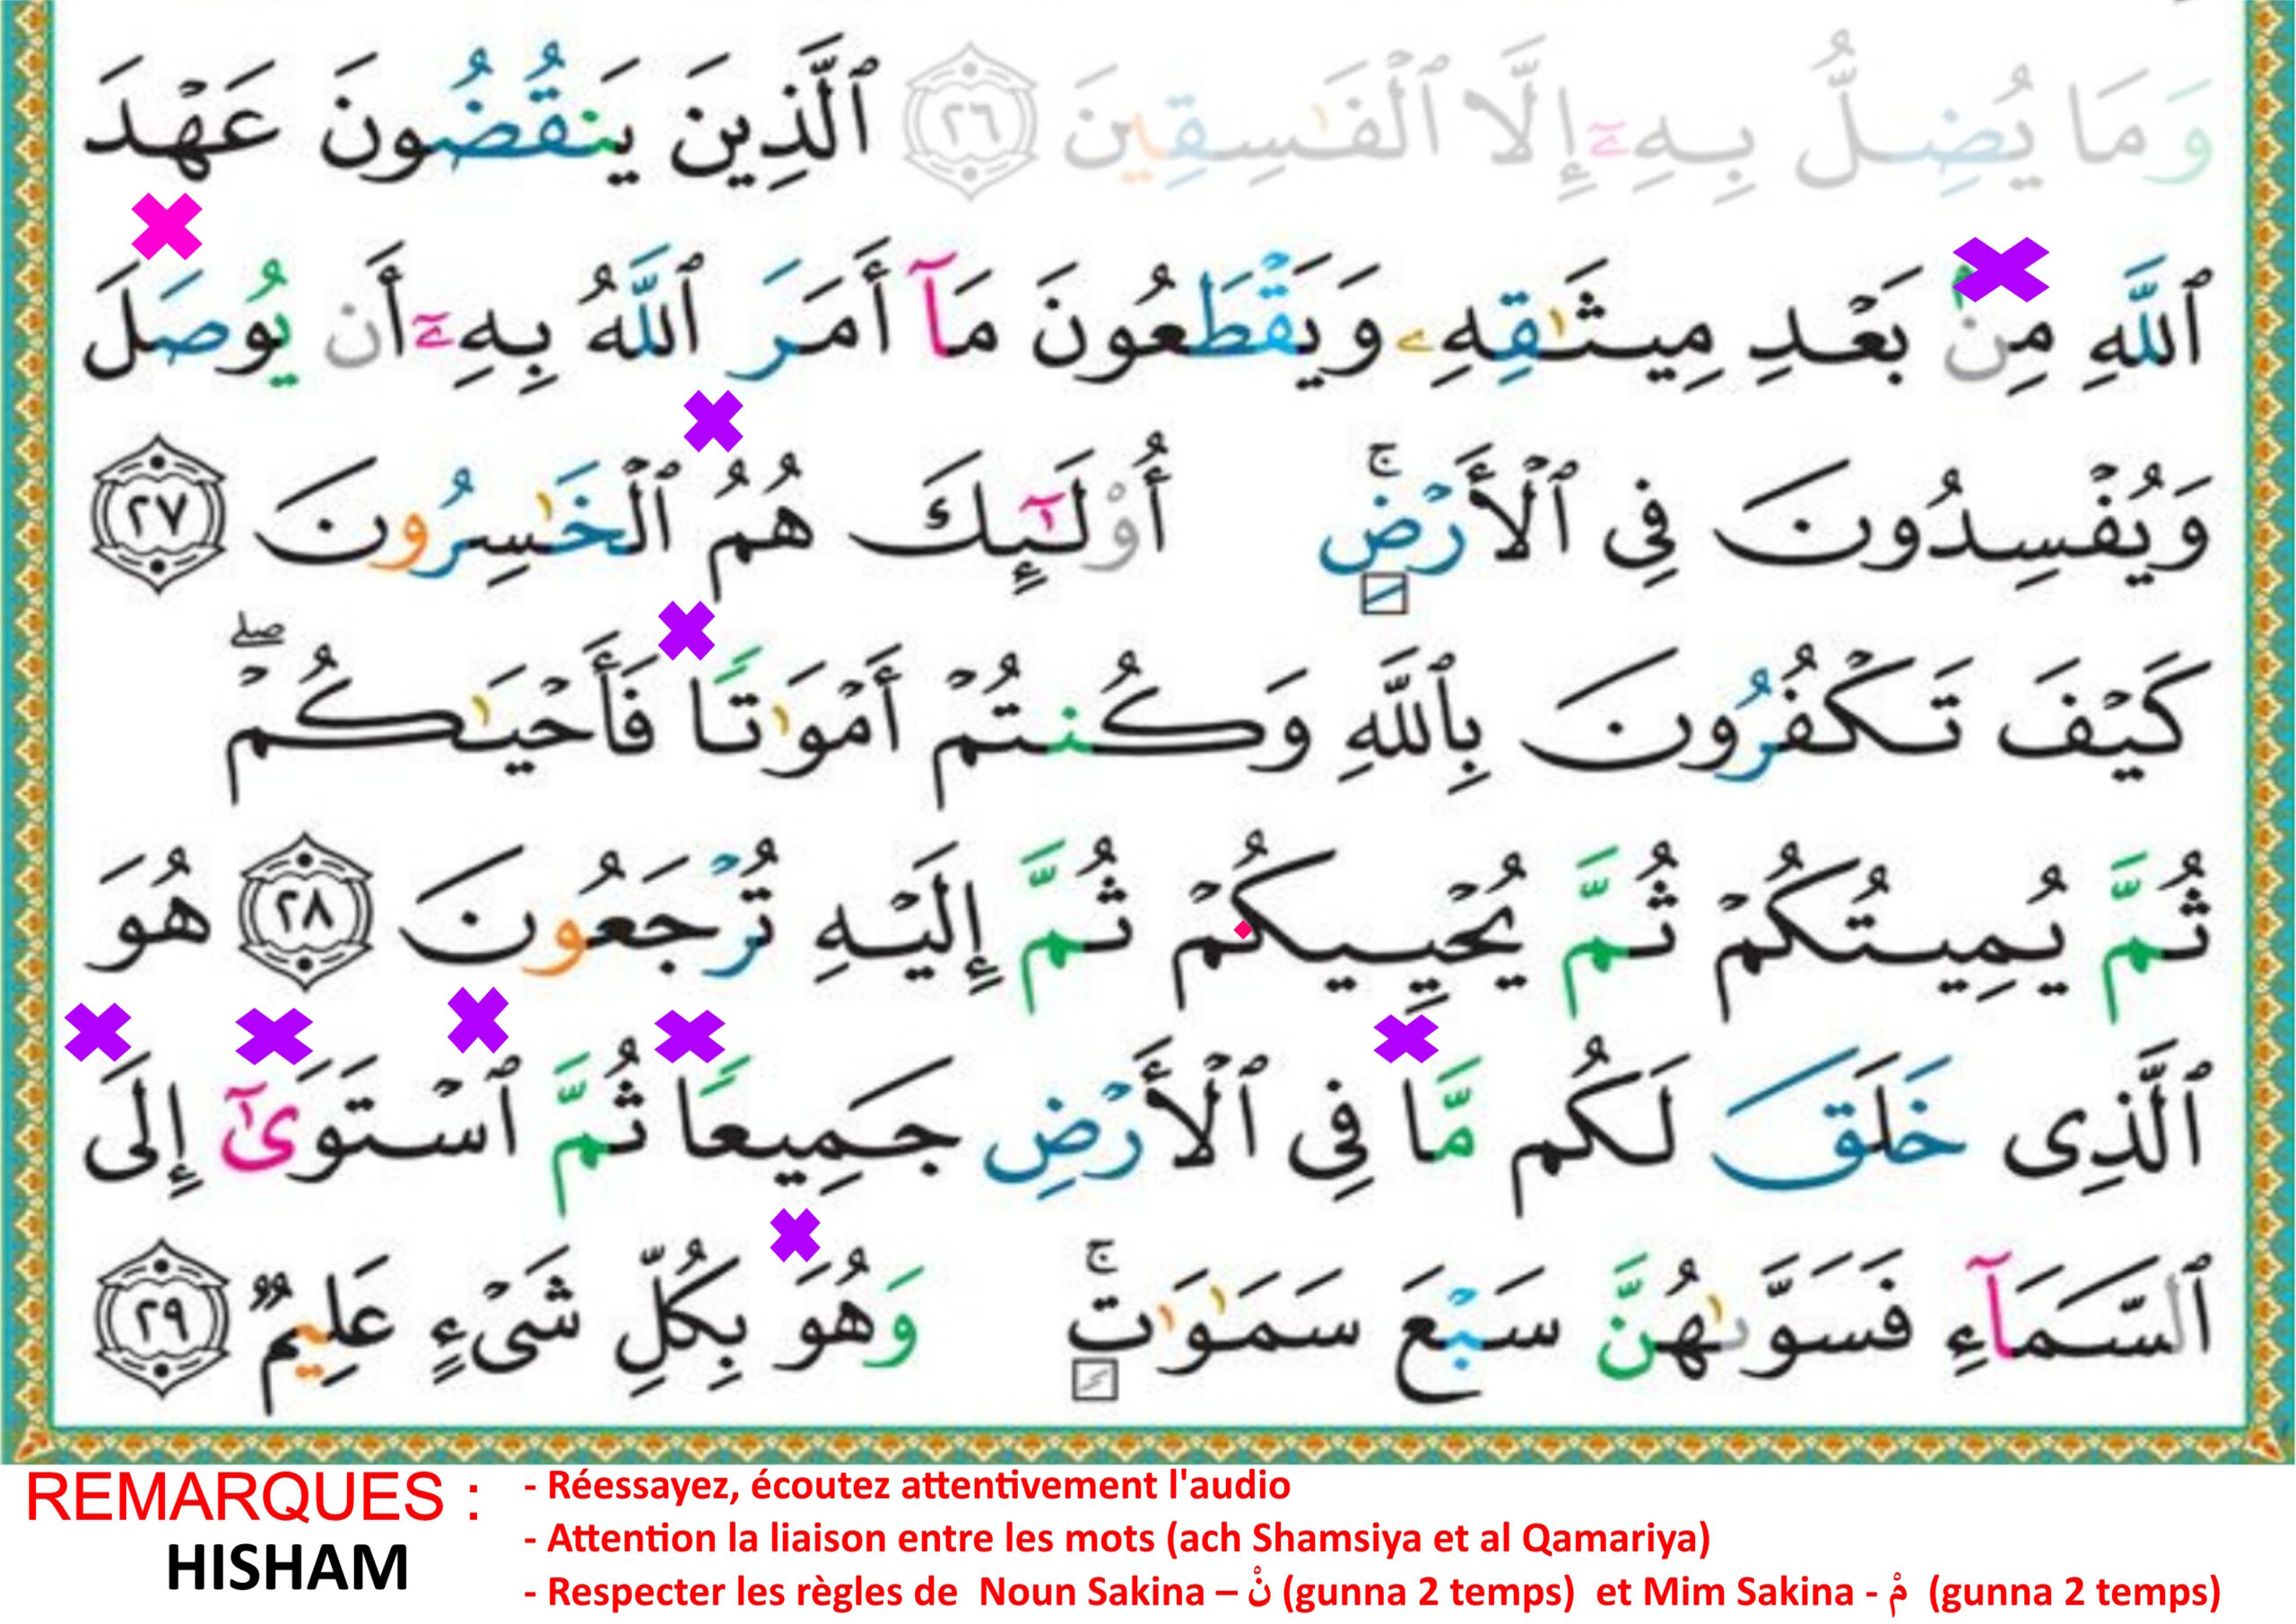 وَمَا يُضِلُّ بِهِۦٓ إِلَّا ٱلْفَـٰسِقِينَ ٢٦ ٱلَّذِينَ يَنقُضُونَ عَهْدَ
ٱللَّهِ مِنۢ بَعْدِ مِيثَـٰقِهِۦ وَيَقْطَعُونَ مَآ أَمَرَ ٱللَّهُ بِهِۦٓ أَن يُوصَلَ
وَيُفْسِدُونَ فِى ٱلْأَرْضِ ۚ أُو۟لَـٰٓئِكَ هُمُ ٱلْخَـٰسِرُونَ ٢٧
كَيْفَ تَكْفُرُونَ بِٱللَّهِ وَكُنتُمْ أَمْوَٰتًا فَأَحْيَـٰكُمْ ۖ
ثُمَّ يُمِيتُكُمْ ثُمَّ يُحْيِيكُمْ ثُمَّ إِلَيْهِ تُرْجَعُونَ ٢٨ هُوَ
ٱلَّذِى خَلَقَ لَكُم مَّا فِى ٱلْأَرْضِ جَمِيعًا ثُمَّ ٱسْتَوَىٰٓ إِلَى
ٱلسَّمَآءِ فَسَوَّىٰهُنَّ سَبْعَ سَمَـٰوَٰتٍ ۚ وَهُوَ بِكُلِّ شَىْءٍ عَلِيمٌ ٢٩
REMARQUES :
HISHAM
- Réessayez, écoutez attentivement l'audio
- Attention la liaison entre les mots (ach Shamsiya et al Qamariya)
- Respecter les règles de Noun Sakina – نْ (gunna 2 temps) et Mim Sakina - مْ (gunna 2 temps)